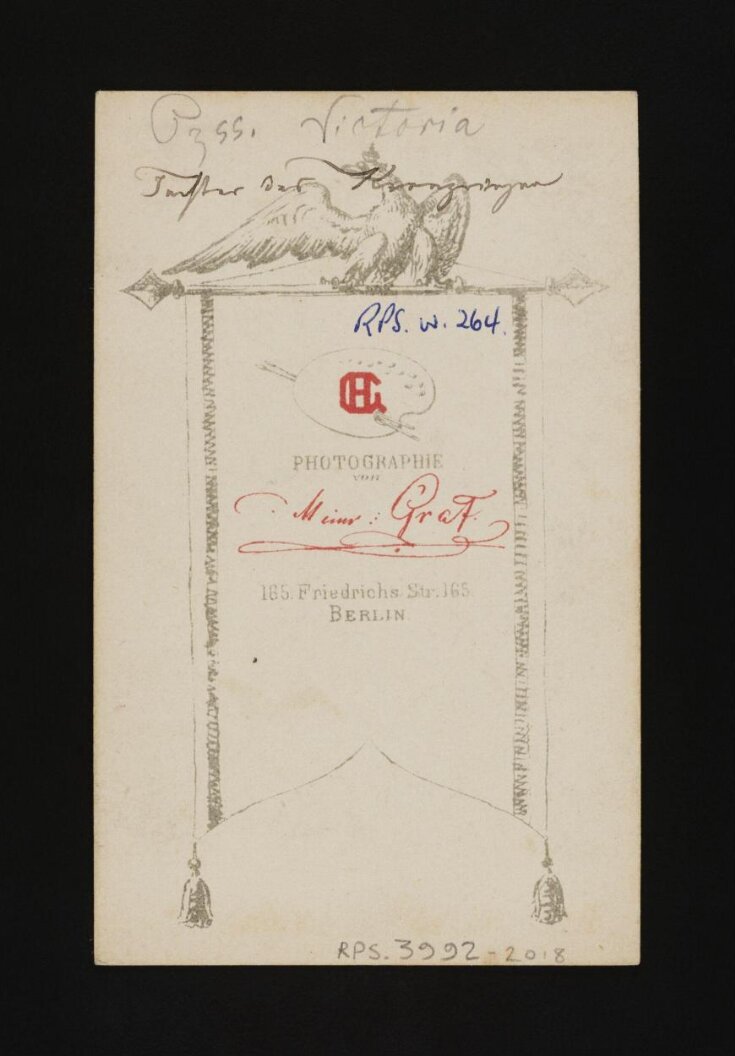 Pzss. Victoria
Tochter des Kronprinzen
RPS. w. 264.
HG
PHOTOGRAPHIE
von
Heinr: Graf.
165. Friedrichs Str. 165.
BERLIN
RPS. 3992-2018